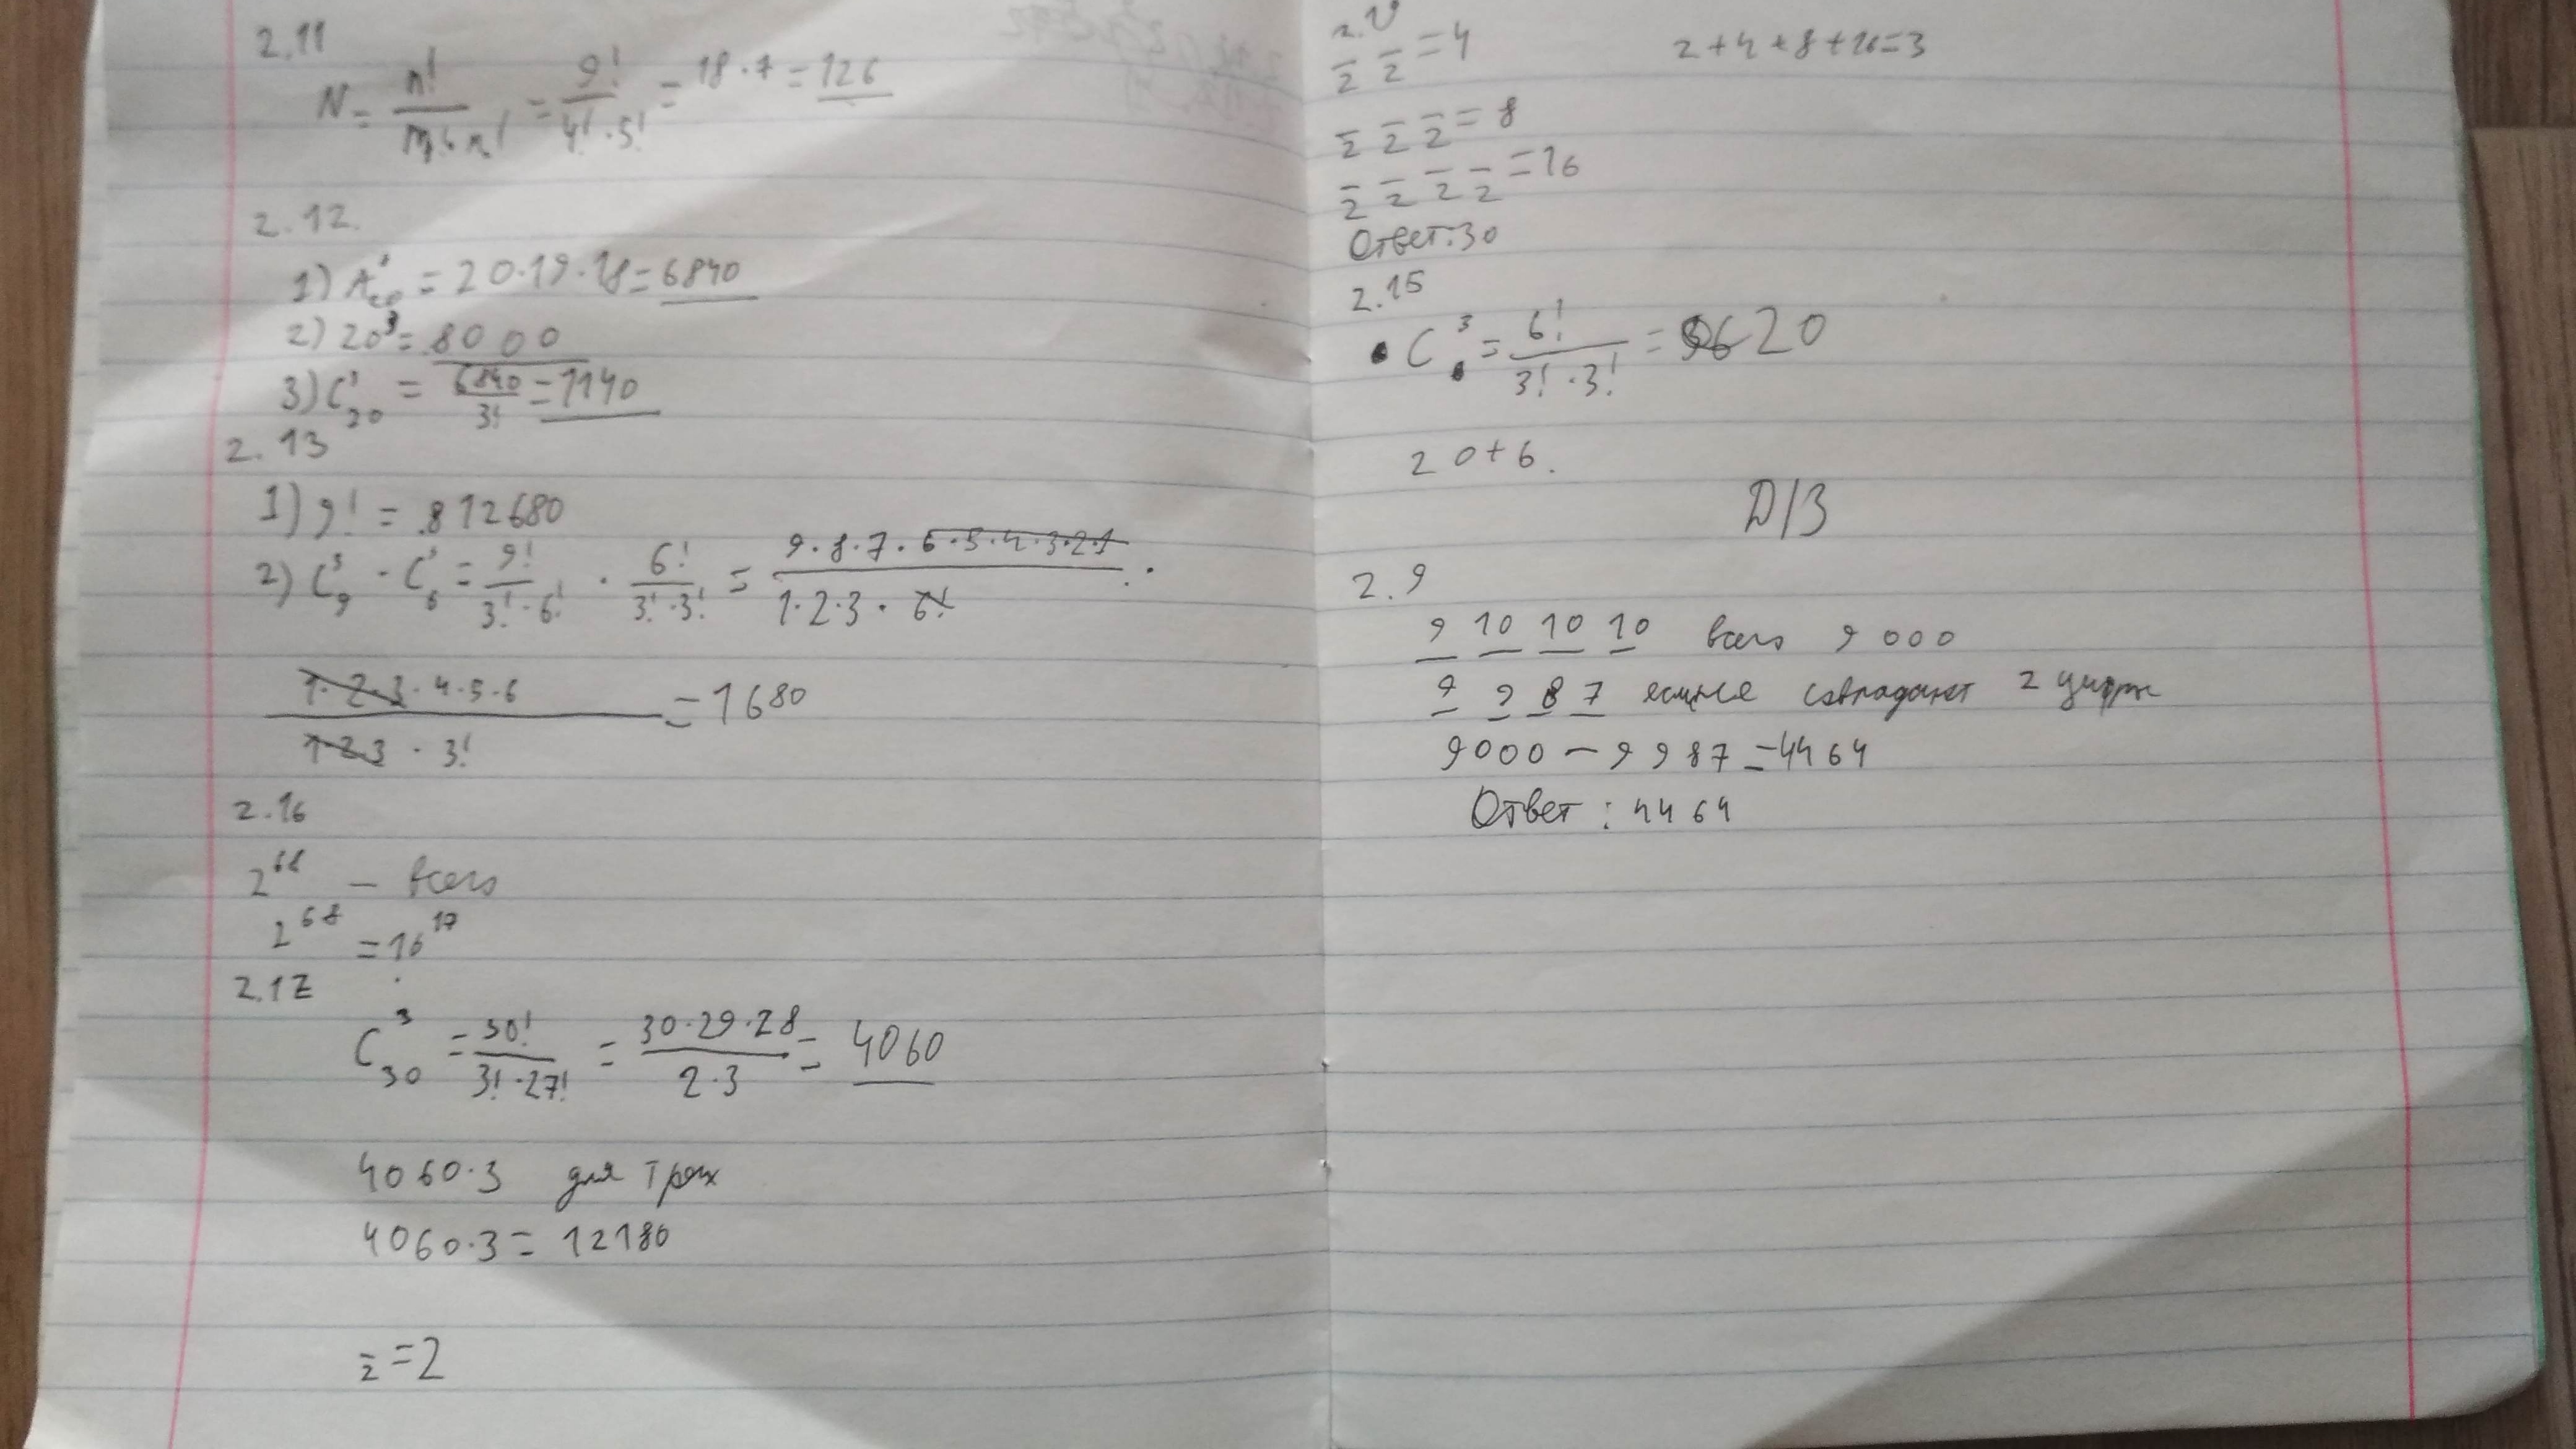 2.11
N = n! / m! n! = 9! / 4! · 5! = 18 · 7 = 126
2.12.
1) A³₂₀ = 20·19·18 = 6840
2) 20³ = 8000
3) C³₂₀ = 6840 / 3! = 1140
2.13
1) 9! = 812680
2) C³₉ · C³₆ = 9! / 3! · 6! · 6! / 3! · 3! = 9·8·7·6·5·4·3·2·1 / 1·2·3·6! ·
1·2·3·4·5·6 / 1·2·3 · 3! = 1680
2.16
2⁶⁸ – всего
2⁶⁸ = 16¹⁷
2.17
C³₃₀ = 30! / 3! · 27! = 30·29·28 / 2·3 = 4060
4060·3 для трёх
4060·3 = 12180
2 = 2
2 2 = 4
2+4+8+16=3
2 2 2 = 8
2 2 2 2 = 16
Ответ: 30
2.15
C³₆ = 6! / 3! · 3! = 20
20+6.
Д/З
2.9
9 10 10 10 всего 9000
9 9 8 7 совпадают 2 цифры
9000 – 9987 = 4464
Ответ: 4464